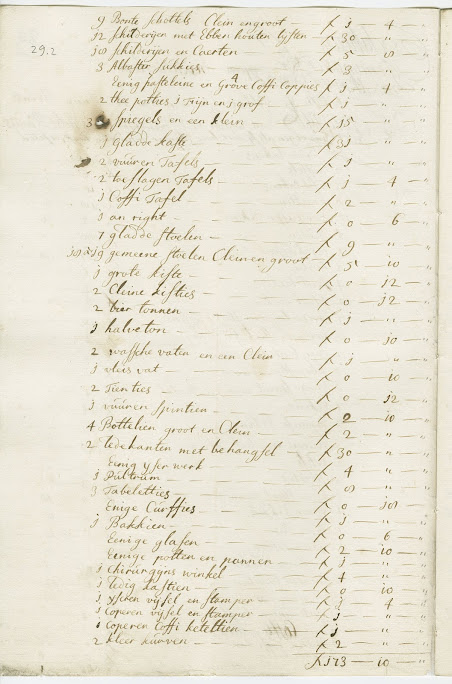 29.2
9 Bonte schottels Clein en groot — £ j — 4 — "
j2 schilderijen met Ebben houten lijsten £ 30 — " — "
j0 schilderijen en Caerten — £ 5 — 8 — "
3 Albaster — £ 3 — " — "
Eenig pasteleine en Grove Coffi Coppies £ j — 4 — "
2 thee potties j Fijn en j grof — £ j — " — "
3 spiegels en een klein — £ j5 — " — "
j Gladde kasse — £ 31 — " — "
2 vuuren Tafels — £ j — " — "
2 toeslagen Tafels — £ j — 4 — "
j Coffi Tafel — £ 2 — " — "
j an right — £ 0 — 6 — "
7 gladde stoelen — £ 9 — " — "
j9 gemeene stoelen Clein en groot — £ 5 — j0 — "
j grote kiste — £ 0 — j2 — "
2 Cleine kisties — £ 0 — j2 — "
2 bier tonnen — £ j — " — "
j halve ton — £ 0 — j0 — "
2 wassche vaten en een Clein — £ j — " — "
j vleis vat — £ 0 — j0 — "
2 Tienties — £ 0 — j2 — "
j vuuren — £ 2 — j0 — "
4 Bottelien groot en Clein — £ 2 — " — "
2 ledekanten met behangsel — £ 30 — " — "
Eenig ijser werk — £ 4 — " — "
j Pultrum — £ 8 — " — "
3 Tabeletties —
Enige Curffies — £ 0 — j8 — "
j Bakkien — £ j — " — "
Eenige glasen — £ 0 — 6 — "
Eenige potten en pannen — £ 2 — j0 — "
j Chirurgijns winkel — £ j — " — "
j ledig — £ 4 — " — "
j ijseren vijsel en stamper — £ 0 — j0 — "
j Coperen vijsel en stamper — £ j — 4 — "
j Coperen Coffi keteltien — £ j — " — "
2 kleer kurven — £ 2 — " — "
£ j73 — j0 — "